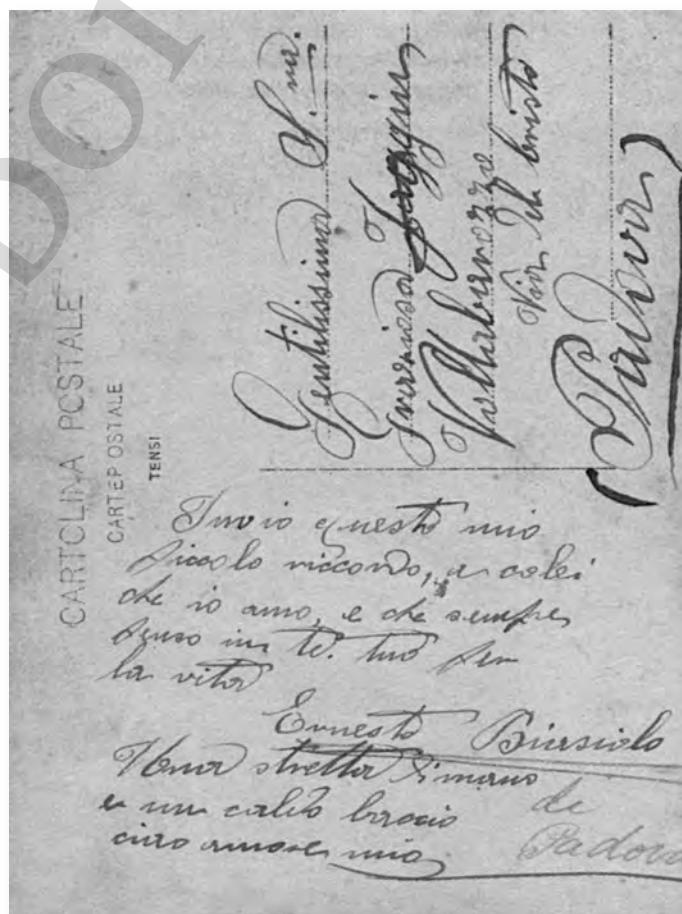 DOI
CARTOLINA POSTALE
CARTEPOSTALE
TENSI
Gentilissima S.na
Vallarborozze
Via Ich Cristo
(Padova)
Invio questo mio
piccolo riccordo, a colei
che io amo, e che sempre
penso in te. tuo per
la vita
Ernesto Biasiolo
Una stretta di mano
e un caldo baccio
caro amore mio
de
Padova